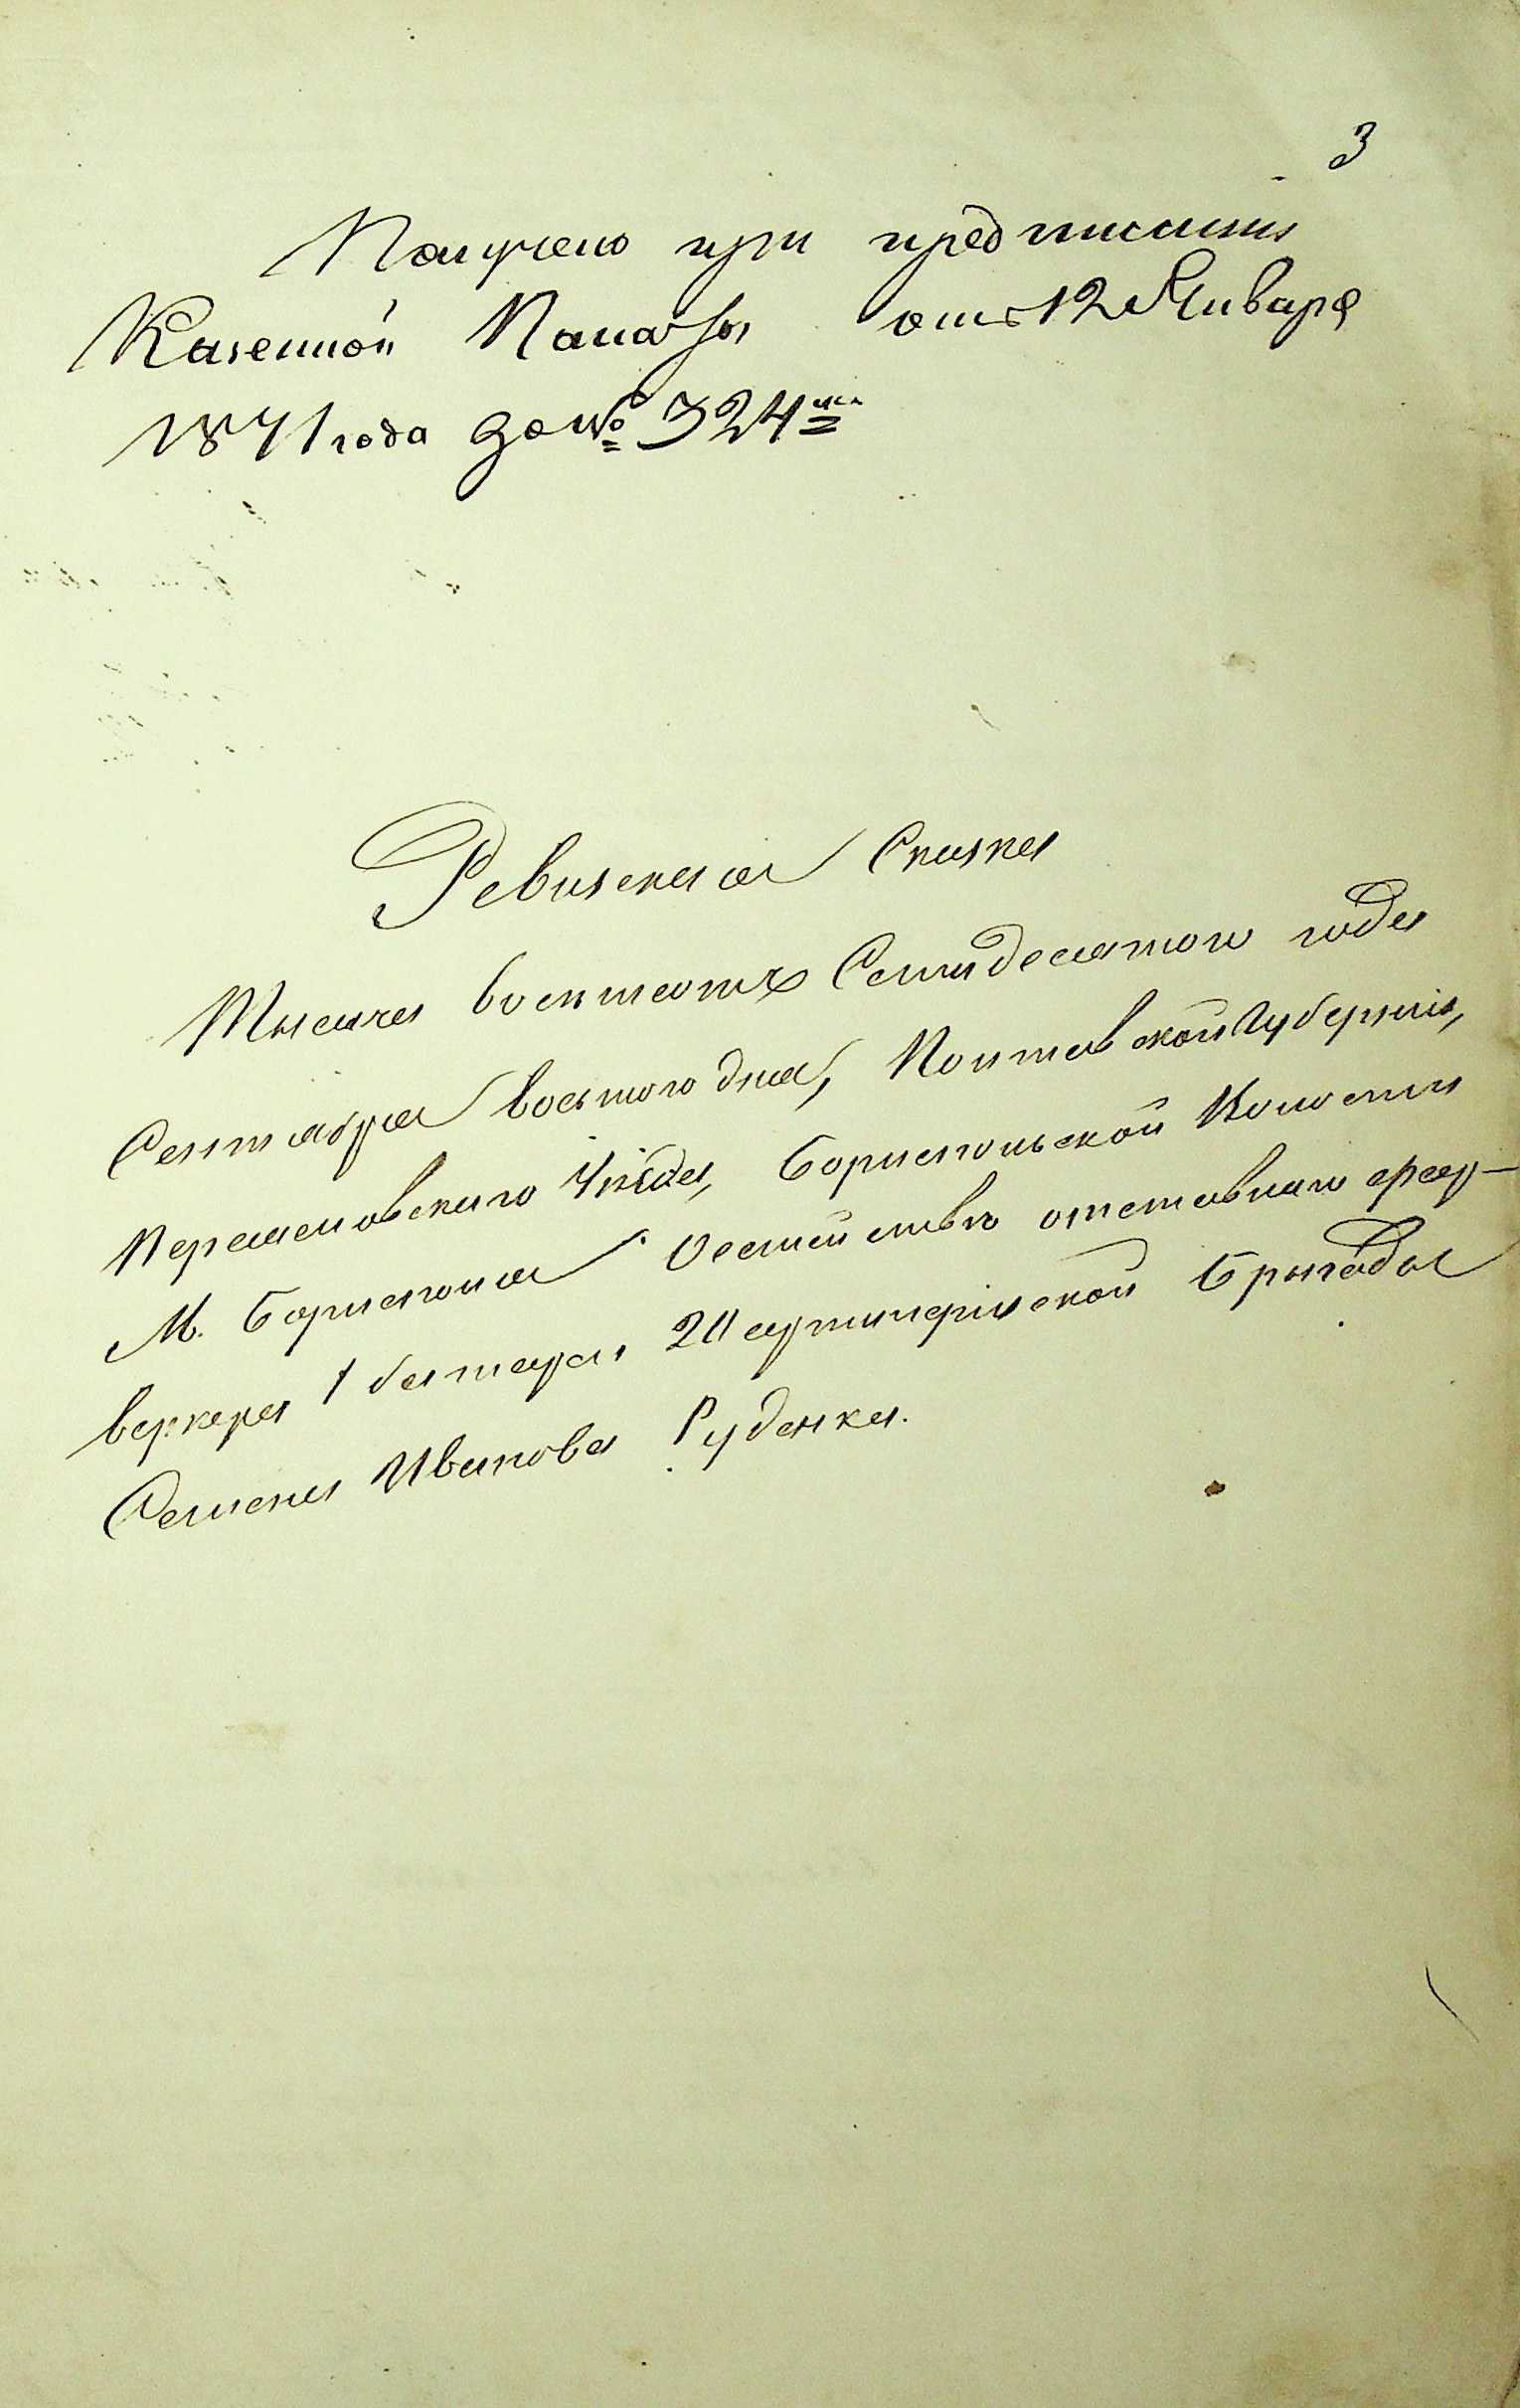 3
Получено при предписании
Казенной Палаты отъ 12 Января
1871 года за № 324мъ
Ревизская Сказка
Тысяча восемьсотъ Семидесятого года
Сентября восьмого дня, Полтавской Губерніи,
Переяславского Уѣзда, Бориспольской Волости
М. Борисполя Осемействѣ отставнаго феер-
веркера 1 батареи 20 артилерійской Бригады
Семена Иванова Руденка.